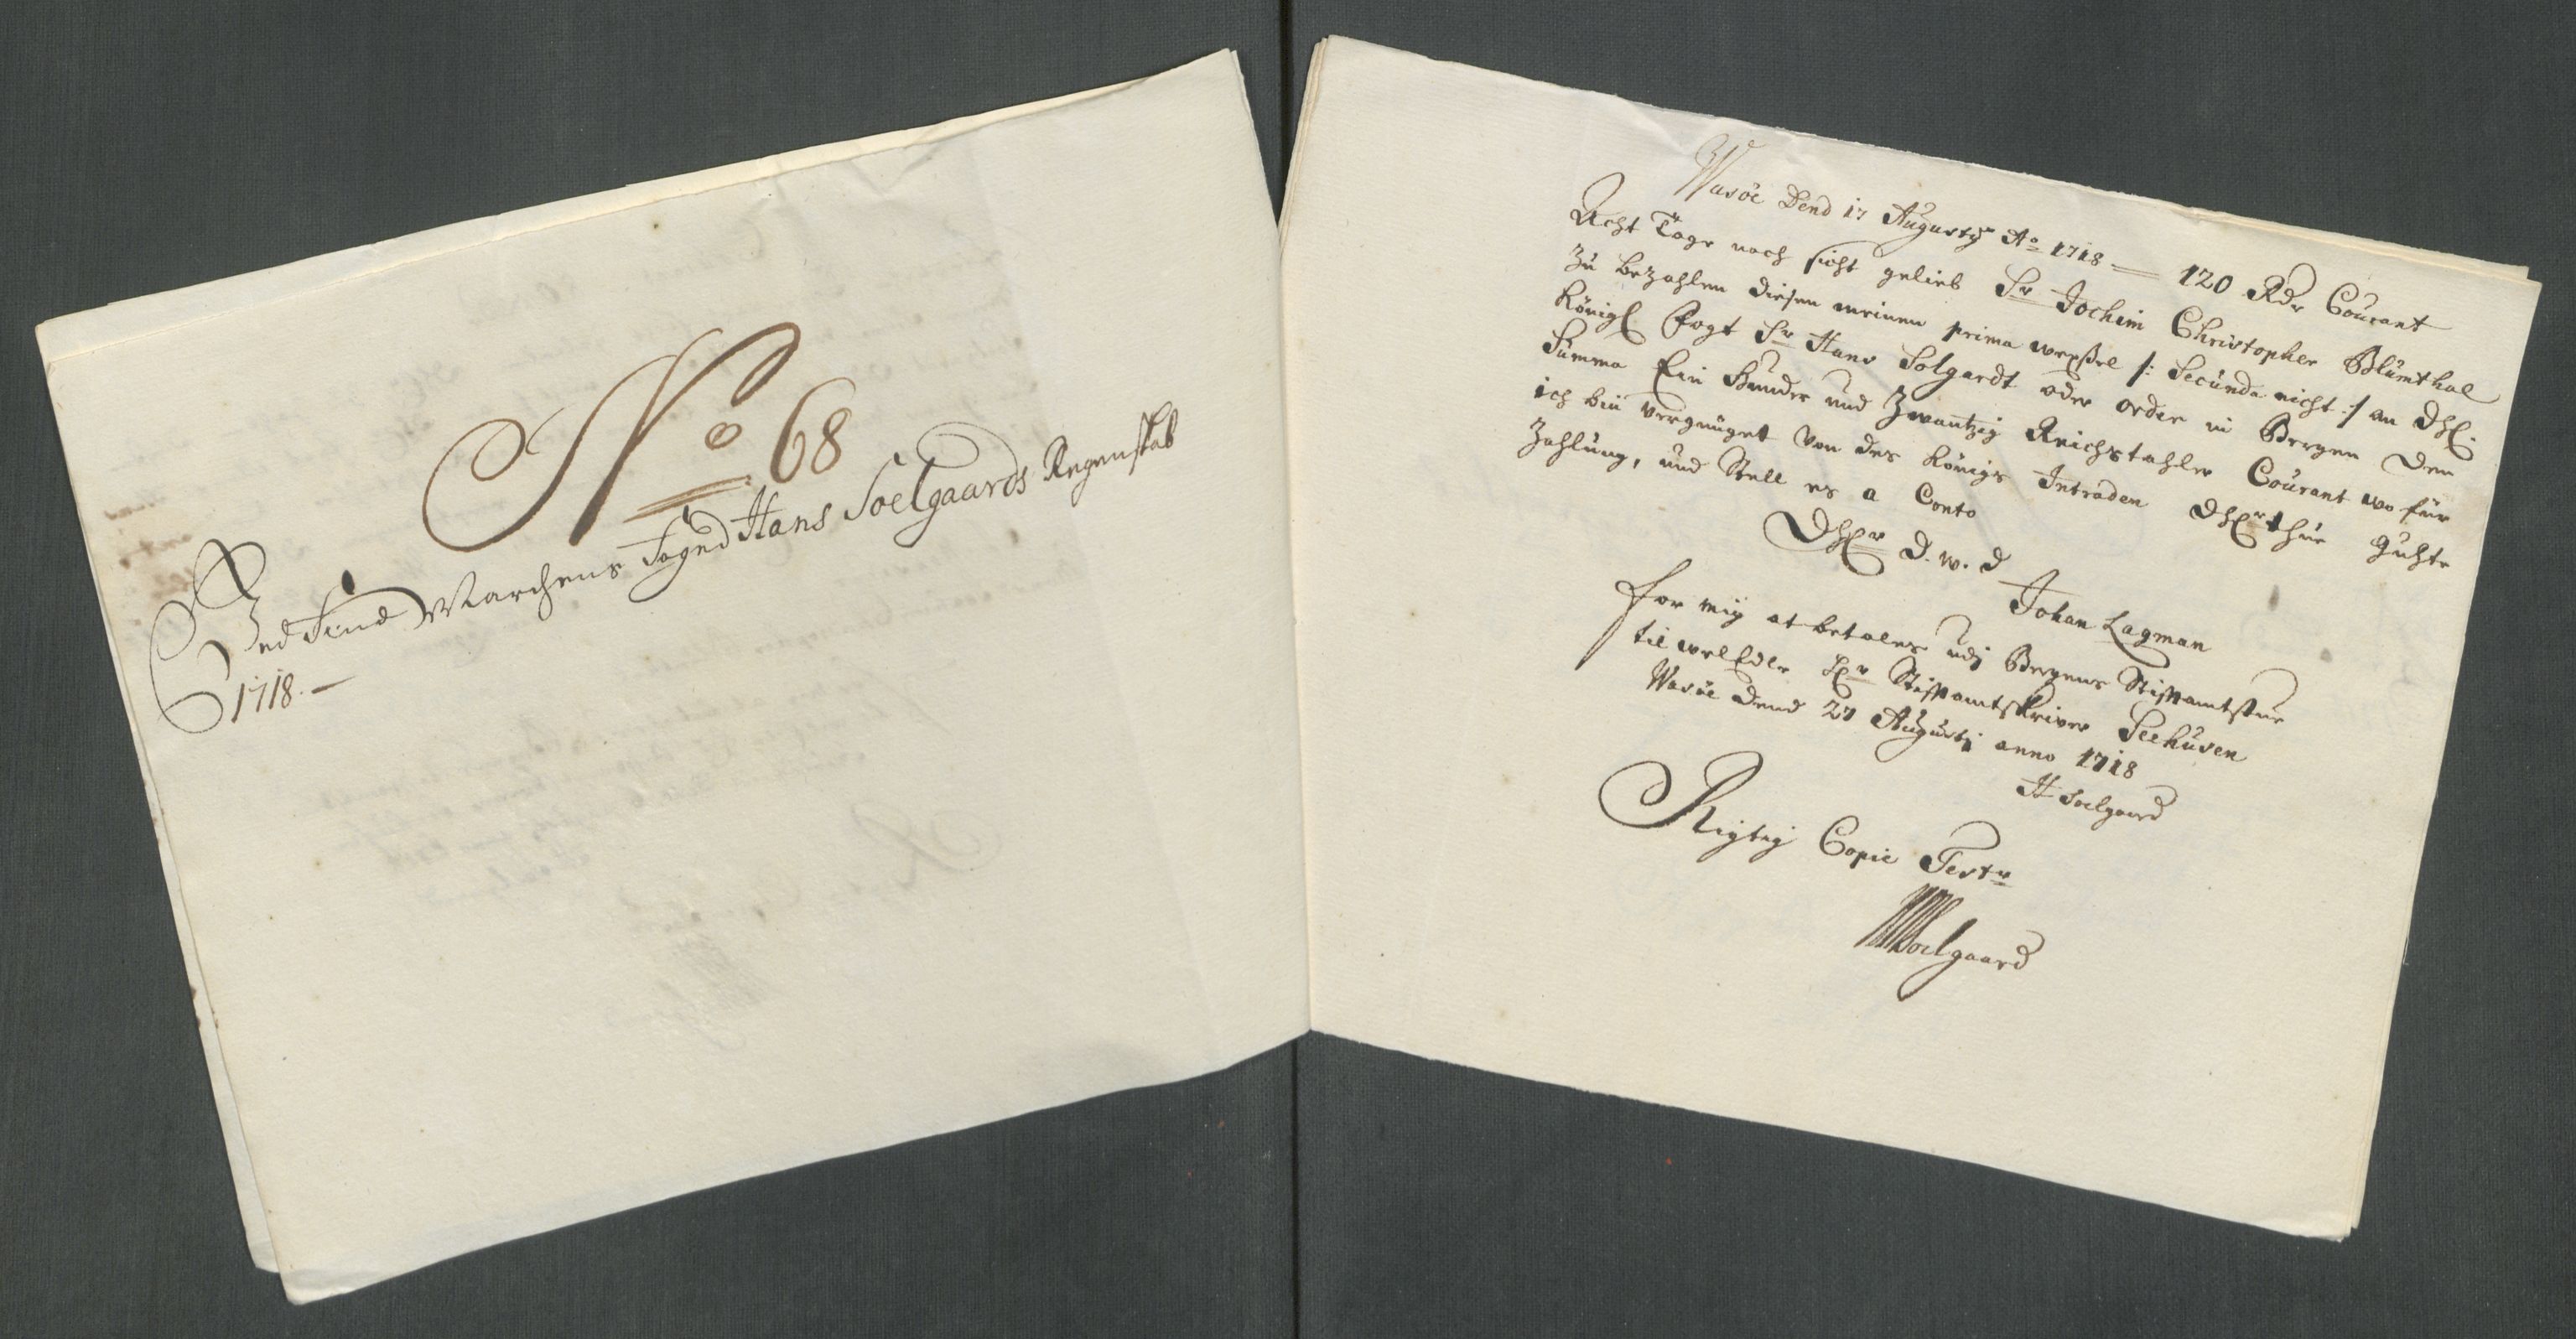 No 68
Ved Find Marchens Fogd Hans Soelgaards Regenskab
1718. —
Wasöe Dend 17 Augusty Ao 1718 = 120 Rdr Courant
Acht Tage nach sicht gelieb Sr Jochim Christopher Blümthal
Zu bezahlen diesen meinen prima wexsel /: Secunda nicht :/ an dhl.
Königl Fogt Sr Hans Solgardt oder order in Bergen den
Summa Ein Hunder und Zwantzig Reichstahler Courant wo für
ich bin vergnüget von des Königs Intraden thue guhte
Zahlung, und Stell es a Conto
D. w. d
Johan Lagman
for mig at betales udj Bergens Stiftamtstue
til welEdle Hr Stiftamtskriver Seehusen
Wasöe Dend 27 Augusti anno 1718
H Soelgaard
Rigtig Copie Testr
HSoelgaard